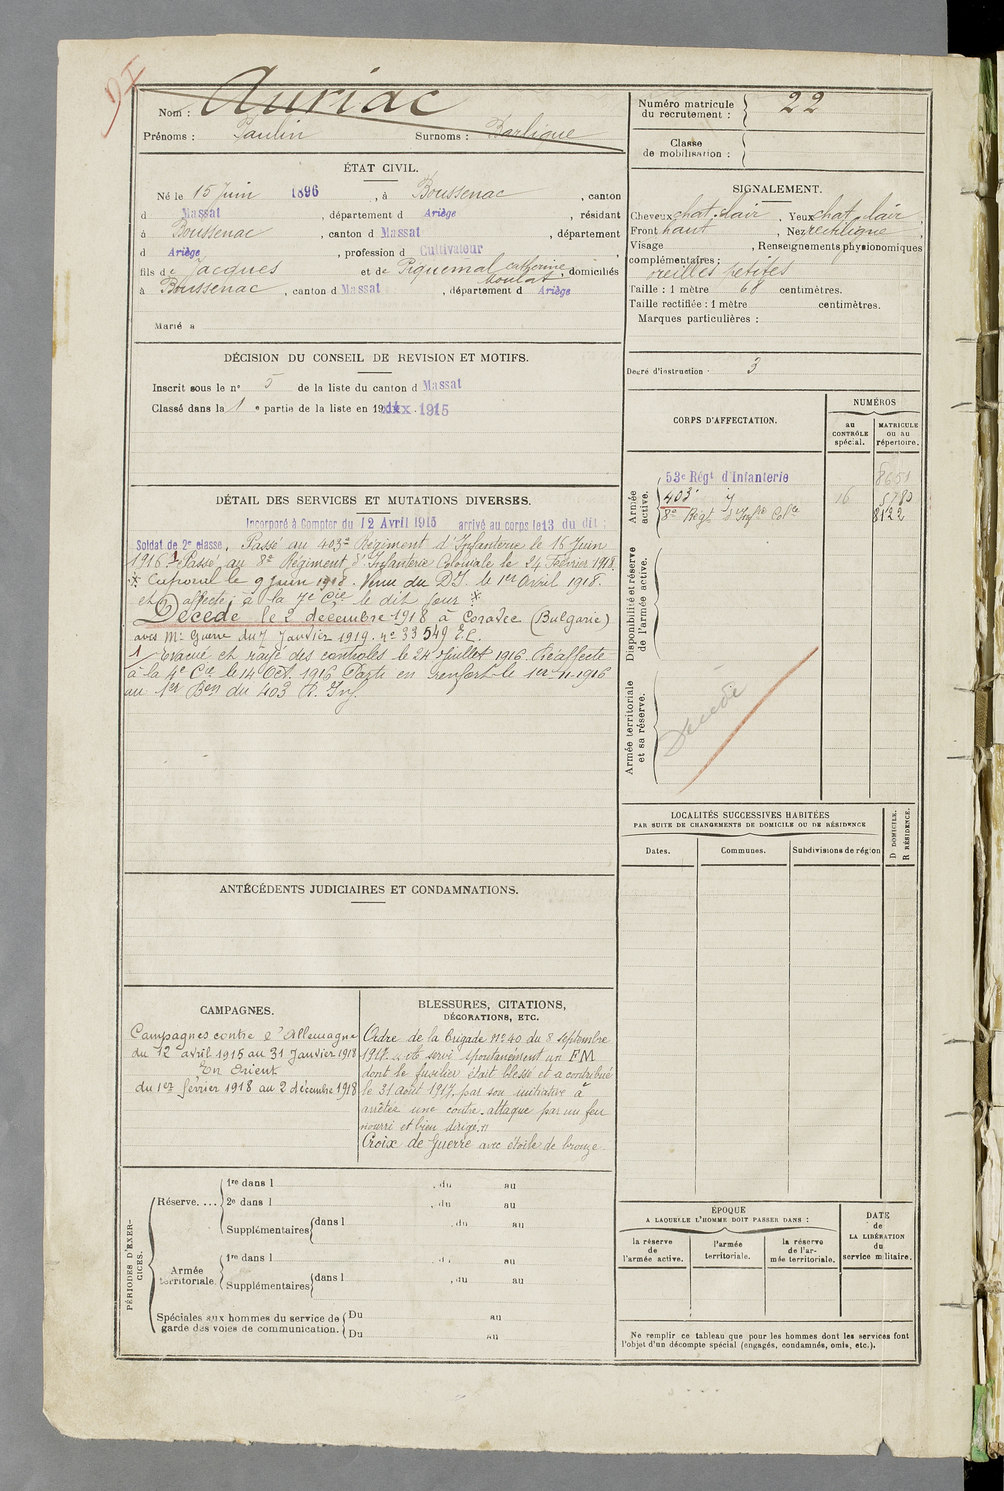 Nom : Auriac
Prénoms : Paulin Surnoms : Barlique
Numéro matricule du recrutement : 22
Classe de mobilisation :
ÉTAT CIVIL.
Né le 15 Juin 1896, à Boussenac, canton
d Massat, département d Ariège, résidant
à Boussenac, canton d Massat, département
d Ariège, profession de Cultivateur
fils de Jacques et de Piquemal catherine, domiciliés
à Boussenac, canton d Massat, département d Ariège
Marié à
SIGNALEMENT.
Cheveux chat. clair, Yeux chat. clair
Front haut, Nez rectiligne
Visage, Renseignements physionomiques
complémentaires :
oreilles petites
Taille : 1 mètre 68 centimètres.
Taille rectifiée : 1 mètre centimètres.
Marques particulières :
Degré d'instruction : 3
DÉCISION DU CONSEIL DE REVISION ET MOTIFS.
Inscrit sous le n° 5 de la liste du canton d Massat
Classé dans la 1e partie de la liste en 19 1915
DÉTAIL DES SERVICES ET MUTATIONS DIVERSES.
Incorporé à Compter du 12 Avril 1915 arrivé au corps le 13 du dit :
Soldat de 2e classe. Passé au 403e Régiment d'Infanterie le 16 Juin
1916. 1 Passé au 8e Régiment d'Infanterie Coloniale le 24 Février 1918.
Caporal le 9 Juin 1918. Venu du D.I. le 1er Avril 1918.
et affecté à la 7e Cie le dit jour
Décédé le 2 décembre 1918 à (Bulgarie)
avis Mre Guerre du 7 Janvier 1919. no 33549
1 Evacué et rayé des contrôles le 24 Juillet 1916. Réaffecté
à la 4e Cie le 14 Oct. 1916 Parti en renfort le 1er-11-1916
au 1er Bon du 403 R. Inf.
CORPS D'AFFECTATION.
NUMÉROS
au CONTRÔLE spécial.
MATRICULE ou au répertoire.
Armée active.
53e Régt d'Infanterie 8651
403e 16 5780
8e Régt d'Infie Cole 8122
Disponibilité et réserve de l'armée active.
Armée territoriale et sa réserve.
Décédé
LOCALITÉS SUCCESSIVES HABITÉES
PAR SUITE DE CHANGEMENTS DE DOMICILE OU DE RÉSIDENCE
Dates. Communes. Subdivisions de région
D DOMICILE. R RÉSIDENCE.
ANTÉCÉDENTS JUDICIAIRES ET CONDAMNATIONS.
CAMPAGNES.
Campagnes contre l'Allemagne
du 12 avril 1915 au 31 Janvier 1918
En Orient
du 1er février 1918 au 2 décembre 1918
BLESSURES, CITATIONS,
DÉCORATIONS, ETC.
Ordre de la Brigade no 40 du 8 septembre
1917. servi spontanément un FM
dont le fusilier était blessé et a contribué
le 31 août 1917, par son initiative à
arrêter une contre-attaque par un feu
nourri et bien dirigé."
Croix de Guerre avec étoile de bronze
PÉRIODES D'EXERCICES.
Réserve....
1re dans l , du au
2e dans l , du au
Supplémentaires dans l , du au
Armée territoriale.
1re dans l , du au
Supplémentaires dans l , du au
Spéciales aux hommes du service de garde des voies de communication.
Du au
Du au
ÉPOQUE
A LAQUELLE L'HOMME DOIT PASSER DANS :
la réserve de l'armée active.
l'armée territoriale.
la réserve de l'armée territoriale.
DATE de LA LIBÉRATION du service militaire.
Ne remplir ce tableau que pour les hommes dont les services font
l'objet d'un décompte spécial (engagés, condamnés, omis, etc.).